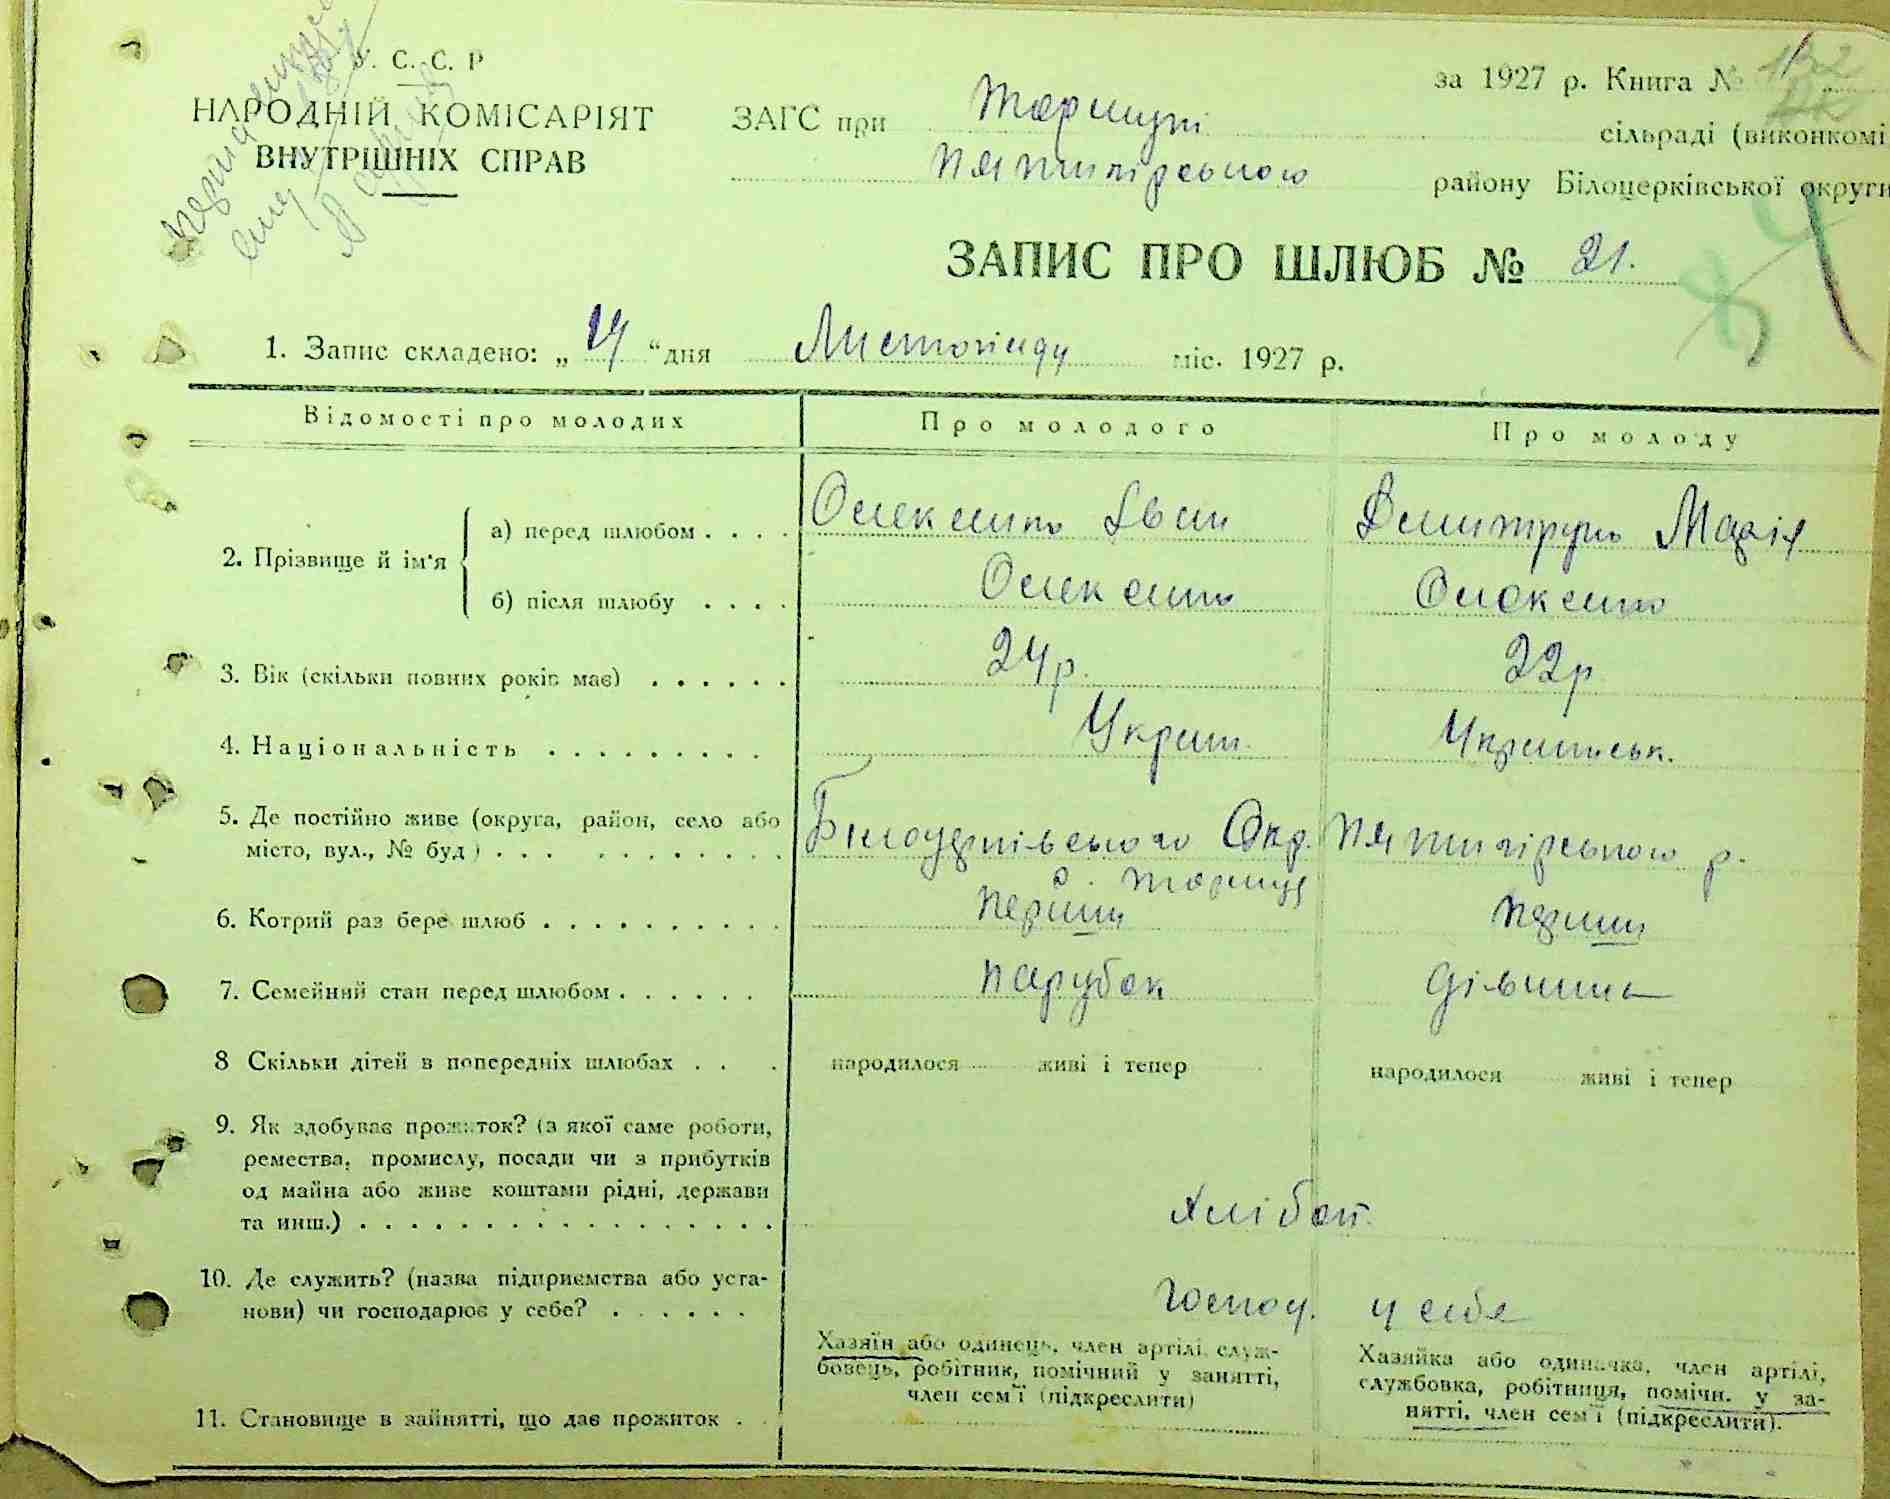 У. С. С. Р
НАРОДНІЙ КОМІСАРІЯТ
ВНУТРІШНІХ СПРАВ
за 1927 р. Книга №
ЗАГС при Торчиці сільраді (виконкомі
Пятигірського району Білоцерківської округи
ЗАПИС ПРО ШЛЮБ № 21.
1. Запис складено: „ “ дня Листопаду міс. 1927 р.
Відомості про молодих Про молодого Про молоду
2. Прізвище й ім'я
а) перед шлюбом . . . . Олексенко Іван Дмитрук Марія
б) після шлюбу . . . . Олексенко Олексенко
3. Вік (скільки повних років має) . . . . . . 24 р. 22 р
4. Національність . . . . . . . . . Украін. Украінськ.
5. Де постійно живе (округа, район, село або Білоцерківського Окр. Пятигірського р.
місто, вул., № буд) . . . . . . . . . . . с. Торчиця
6. Котрий раз бере шлюб . . . . . . . . . . перший перший
7. Семейний стан перед шлюбом . . . . . . парубок дівчина
8 Скільки дітей в попередніх шлюбах . . . народилося живі і тепер народилося живі і тепер
9. Як здобуває прожиток? (з якої саме роботи,
ремества, промислу, посади чи з прибутків
од майна або живе коштами рідні, держави
та инш.) . . . . . . . . . . . . . . . . . Хлібоп.
10. Де служить? (назва підприємства або уста-
нови) чи господарює у себе? . . . . . . Господ. у себе
Хазяїн або одинець, член артілі, служ-
бовець, робітник, помічний у занятті,
член сем'ї (підкреслити)
Хазяйка або одиначка, член артілі,
службовка, робітниця, помічн. у за-
нятті, член сем'ї (підкреслити).
11. Становище в зайнятті, що дає прожиток . .